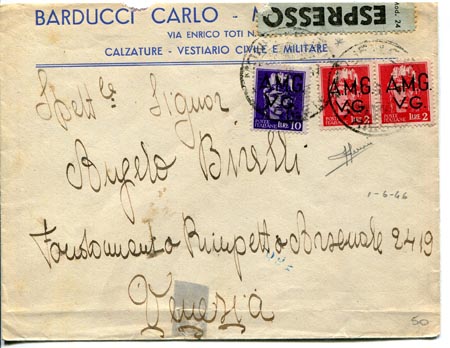 BARDUCCI CARLO - M
ESPRESSO
Mod. 24
VIA ENRICO TOTI N.
CALZATURE - VESTIARIO CIVILE E MILITARE
A.M.G. V.G.
POSTE ITALIANE LIRE 10
A.M.G. V.G.
POSTE ITALIANE LIRE 2
A.M.G. V.G.
POSTE ITALIANE LIRE 2
Spett/le Signor
1-6-46
Angelo Birelli
Fondamento Rimpetto Arsenale 2419
Venezia
50